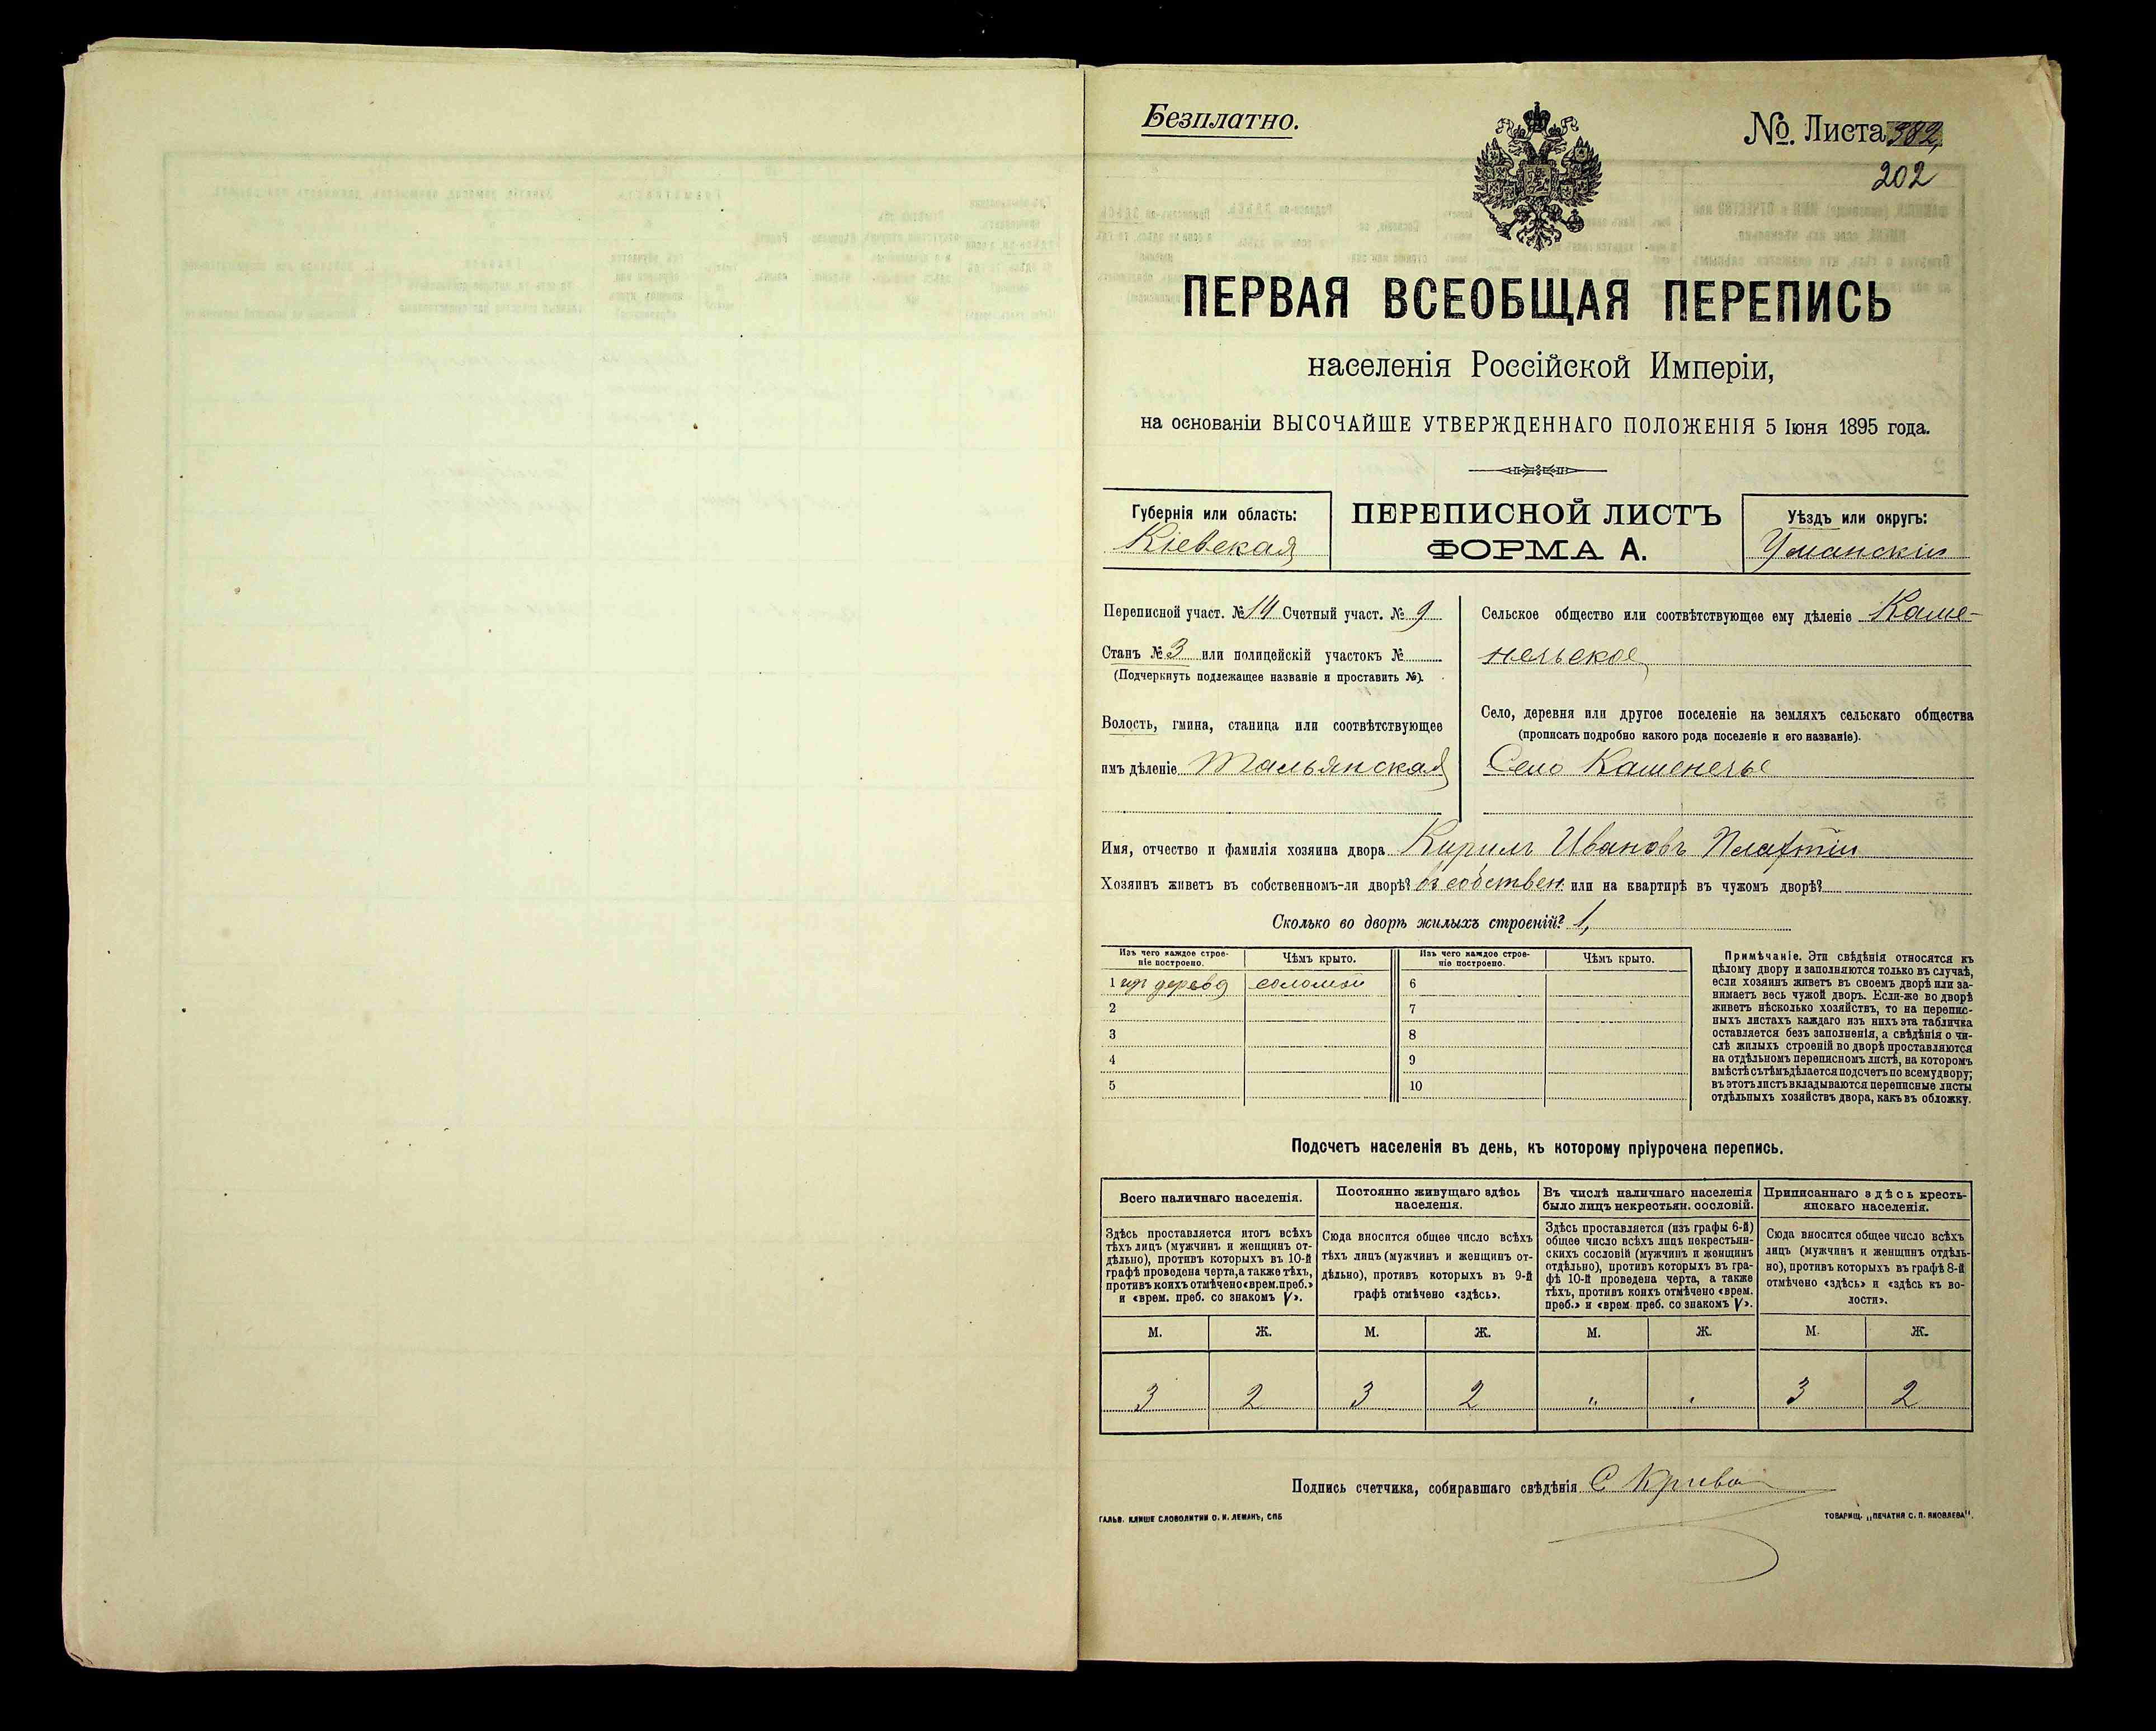 Безплатно.
№ Листа 382,
202
ПЕРВАЯ ВСЕОБЩАЯ ПЕРЕПИСЬ
населенія Россійской Имперіи,
на основаніи ВЫСОЧАЙШЕ УТВЕРЖДЕННАГО ПОЛОЖЕНІЯ 5 Іюня 1895 года.
Губернія или область:
Кіевская
ПЕРЕПИСНОЙ ЛИСТЪ
ФОРМА А.
Уѣздъ или округъ:
Уманскій
Переписной участ. № 14 Счетный участ. № 9
Станъ № 3 или полицейскій участокъ №
(Подчеркнуть подлежащее названіе и проставить №).
Волость, гмина, станица или соотвѣтствующее
имъ дѣленіе Тальянская
Сельское общество или соотвѣтствующее ему дѣленіе Каме-
нельское
Село, деревня или другое поселеніе на земляхъ сельскаго общества
(прописать подробно какого рода поселеніе и его названіе).
Село Каменечье
Имя, отчество и фамилія хозяина двора Кирилъ Ивановъ
Хозяинъ живетъ въ собственномъ-ли дворѣ? въ собствен. или на квартирѣ въ чужомъ дворѣ?
Сколько во дворѣ жилыхъ строеній? 1,
Изъ чего каждое строе-
ніе построено.
Чѣмъ крыто.
Изъ чего каждое строе-
ніе построено.
Чѣмъ крыто.
1 изъ дерева соломой 6
2 7
3 8
4 9
5 10
Примѣчаніе. Эти свѣдѣнія относятся къ
цѣлому двору и заполняются только въ случаѣ,
если хозяинъ живетъ въ своемъ дворѣ или за-
нимаетъ весь чужой дворъ. Если-же во дворѣ
живетъ нѣсколько хозяйствъ, то на перепис-
ныхъ листахъ каждаго изъ нихъ эта табличка
оставляется безъ заполненія, а свѣдѣнія о чи-
слѣ жилыхъ строеній во дворѣ проставляются
на отдѣльномъ переписномъ листѣ, на которомъ
вмѣстѣ съ тѣмъ дѣлается подсчетъ по всему двору;
въ этотъ листъ вкладываются переписные листы
отдѣльныхъ хозяйствъ двора, какъ въ обложку.
Подсчетъ населенія въ день, къ которому пріурочена перепись.
Всего наличнаго населенія.
Здѣсь проставляется итогъ всѣхъ
тѣхъ лицъ (мужчинъ и женщинъ от-
дѣльно), противъ которыхъ въ 10-й
графѣ проведена черта, а также тѣхъ,
противъ коихъ отмѣчено «врем. преб.»
и «врем. преб. со знакомъ V».
Постоянно живущаго здѣсь
населенія.
Сюда вносится общее число всѣхъ
тѣхъ лицъ (мужчинъ и женщинъ от-
дѣльно), противъ которыхъ въ 9-й
графѣ отмѣчено «здѣсь».
Въ числѣ наличнаго населенія
было лицъ некрестьян. сословій.
Здѣсь проставляется (изъ графы 6-й)
общее число всѣхъ лицъ некрестьян-
скихъ сословій (мужчинъ и женщинъ
отдѣльно), противъ которыхъ въ гра-
фѣ 10-й проведена черта, а также
тѣхъ, противъ коихъ отмѣчено «врем.
преб.» и «врем. преб. со знакомъ V».
Приписаннаго здѣсь кресть-
янскаго населенія.
Сюда вносится общее число всѣхъ
лицъ (мужчинъ и женщинъ отдѣль-
но), противъ которыхъ въ графѣ 8-й
отмѣчено «здѣсь» и «здѣсь къ во-
лости».
М. Ж. М. Ж. М. Ж. М. Ж.
3 2 3 2 " " 3 2
Подпись счетчика, собиравшаго свѣдѣнія С Крива
ГАЛЬВ. КЛИШЕ СЛОВОЛИТНИ О. И. ЛЕМАНЪ, СПБ
ТОВАРИЩ. „ПЕЧАТНЯ С. П. ЯКОВЛЕВА".